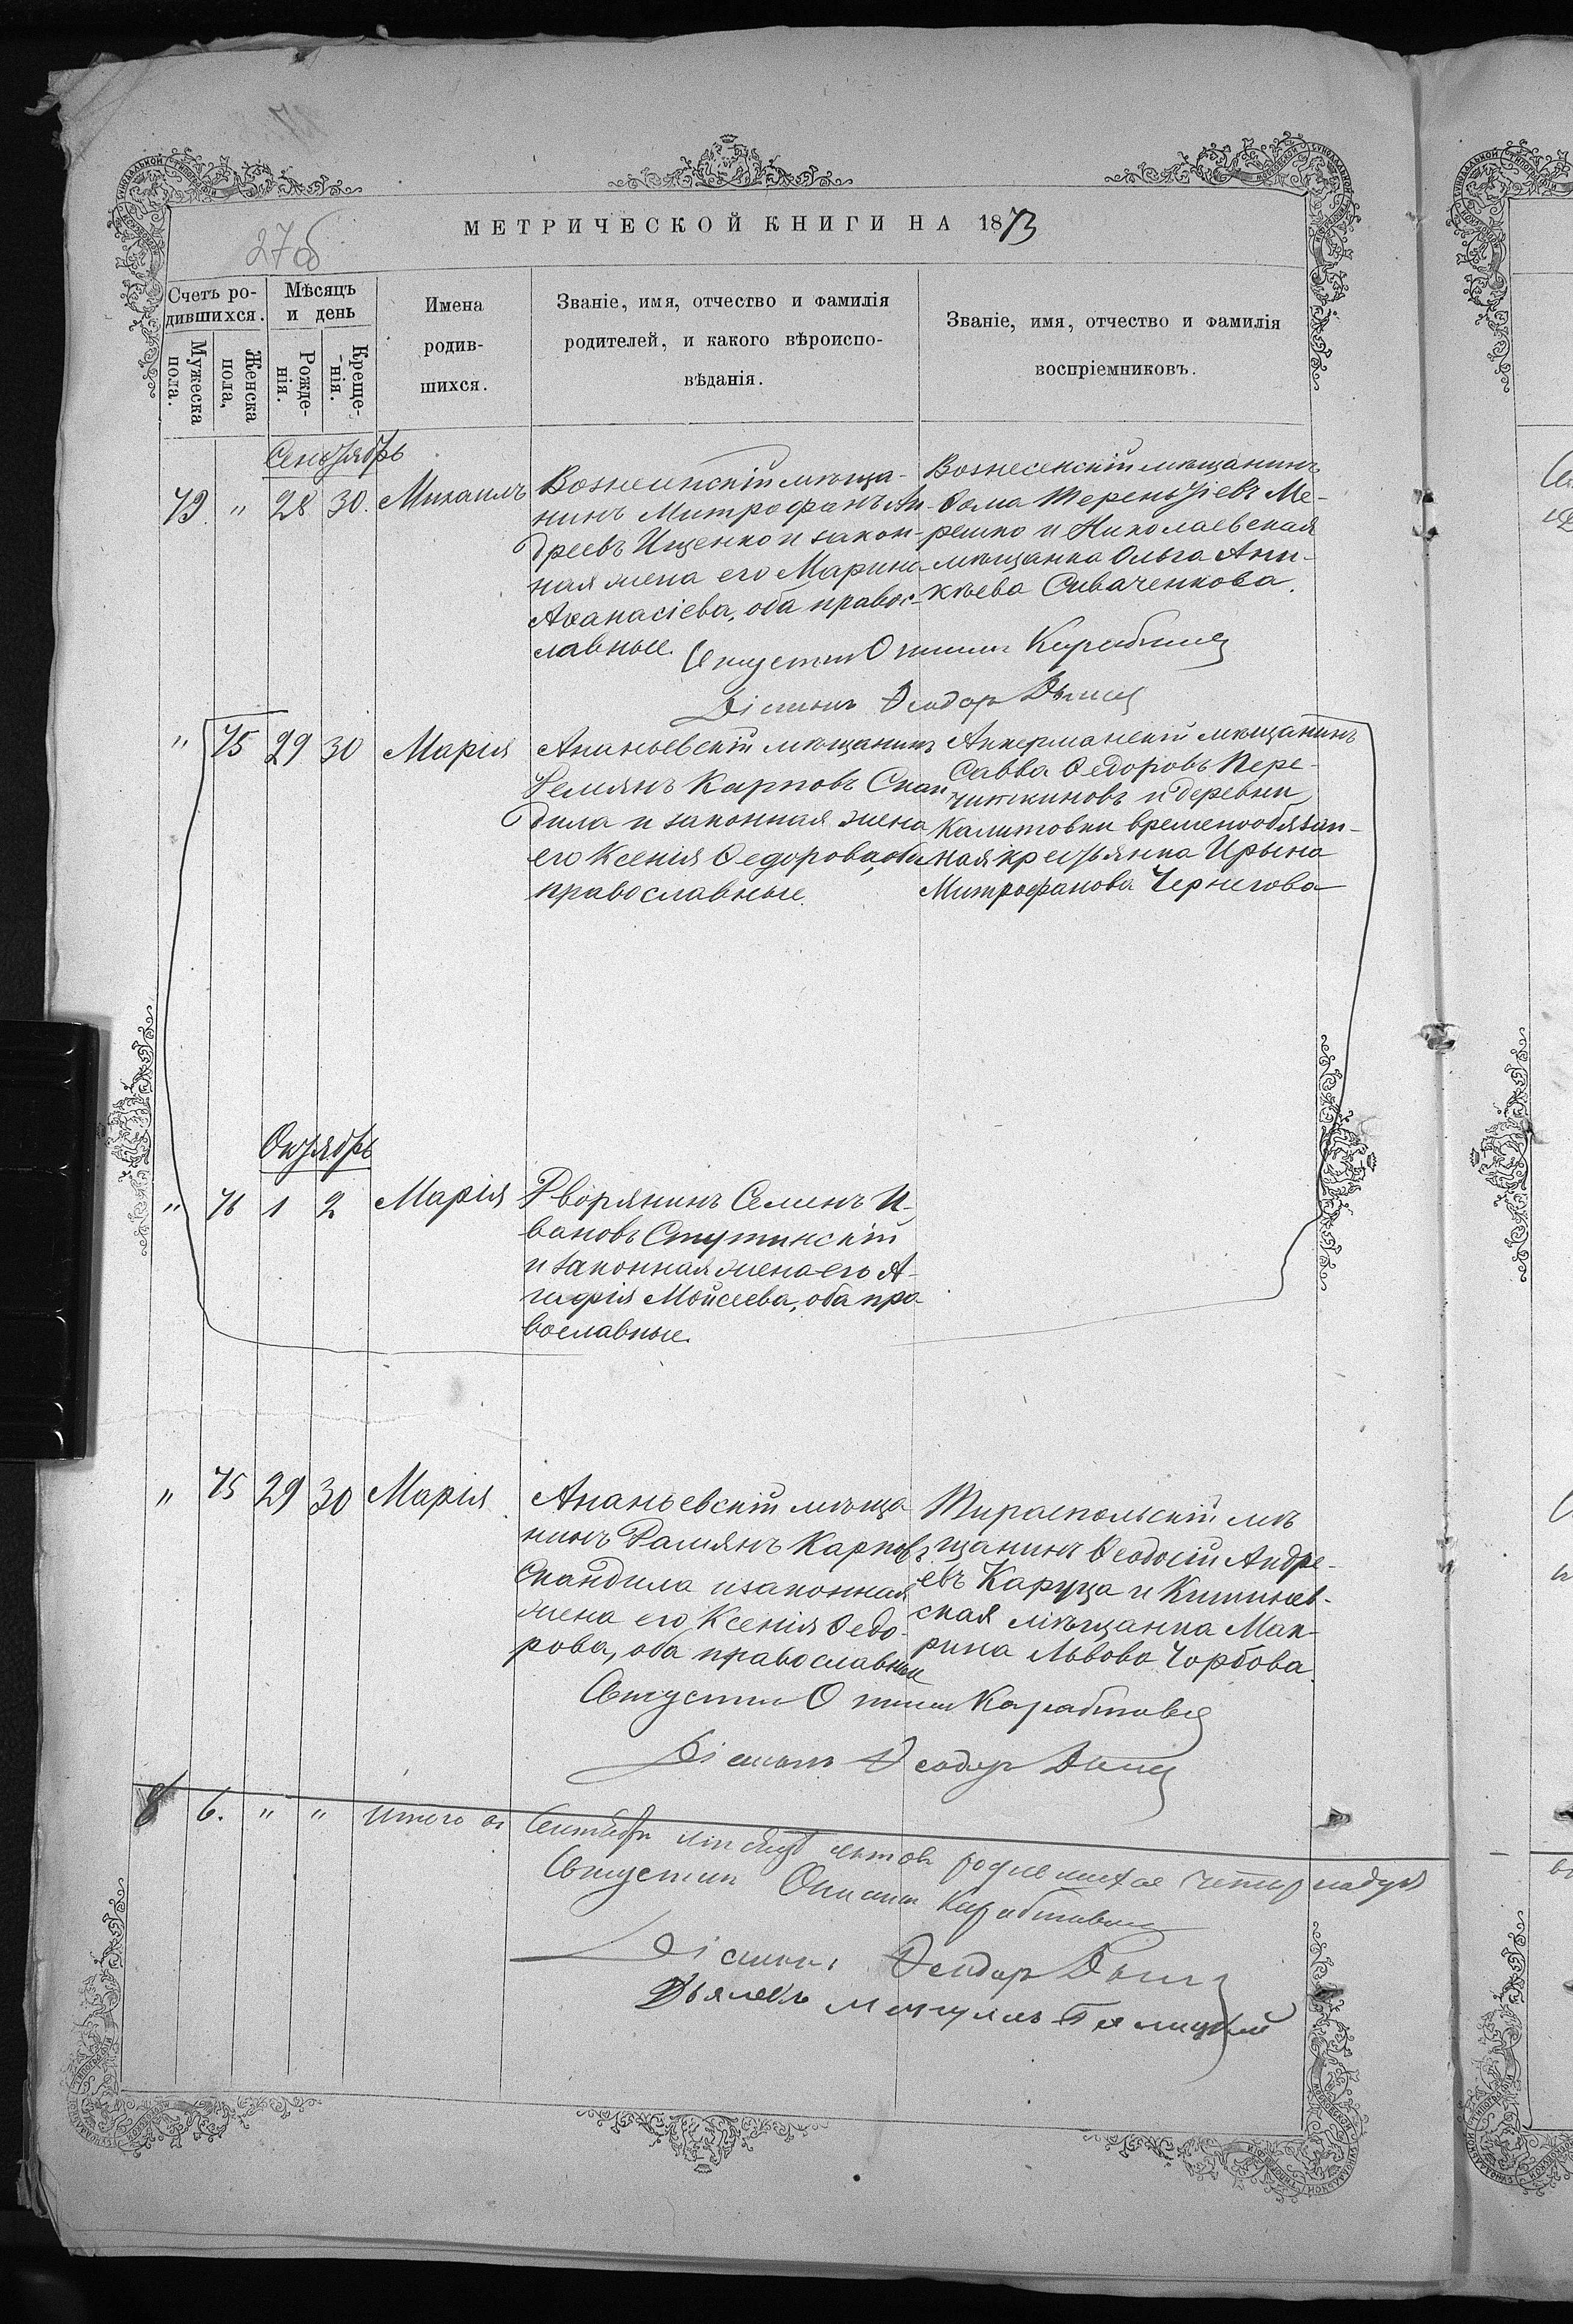 МЕТРИЧЕСКОЙ КНИГИ НА 1873
276
Счетъ ро-
дившихся.
Мужеска
пола.
Женска
пола,
Мѣсяцъ
и день
Рожде-
нія.
Креще-
-нія.
Имена
родив-
шихся.
Званіе, имя, отчество и фамилія
родителей, и какого вѣроиспо-
вѣданія.
Званіе, имя, отчество и фамилія
воспріемниковъ.
Сентябрь
73. " 28 30. Михаилъ
Вознесенскій мѣща-
нинъ Митрофанъ Ан-
дреевъ Ищенко и закон-
ная жена его Марина
Аѳанасіева, оба правос-
лавные.
Вознесенскій мѣщанинъ
Ѳома Терентіевъ Ме-
решко и Николаевская
мѣщанка Ольга Ани-
кѣева Сиваченкова.
Ѳеодоръ
" 75 29 30 Марія
Ананьевскій мѣщанинъ
Демьянъ Карповъ Скан
дила и законная жена
его Ксенія Ѳедорова, оба
православные.
Аккерманскій мѣщанинъ
Савва Ѳедоровъ Пере-
читкиновъ и деревни
Калитовки временнообязан-
ная крестьянка Ирына
Митрофанова Чернегова
Октябрь
" 76 1 2 Марія
Дворянинъ Семенъ И-
вановъ Стутинскій
и законная жена его А-
гафія Мойсеева, оба пра-
вославные.
" 75 29 30 Марія
Ананьевскій мѣща
нинъ Дамянъ Карповъ
Скандила и законная
жена его Ксенія Ѳедо-
рова, оба православные
Тираспольскій мѣ
щанинъ Ѳеодосій Андре-
евъ Каруца и Кишинев-
ская мѣщанка Мак-
рина Львова Чорбова
Ѳеодоръ
8 6. " " Итого въ Сентябрѣ мѣсяцѣ родившихся четырнадцать
Ѳеодоръ